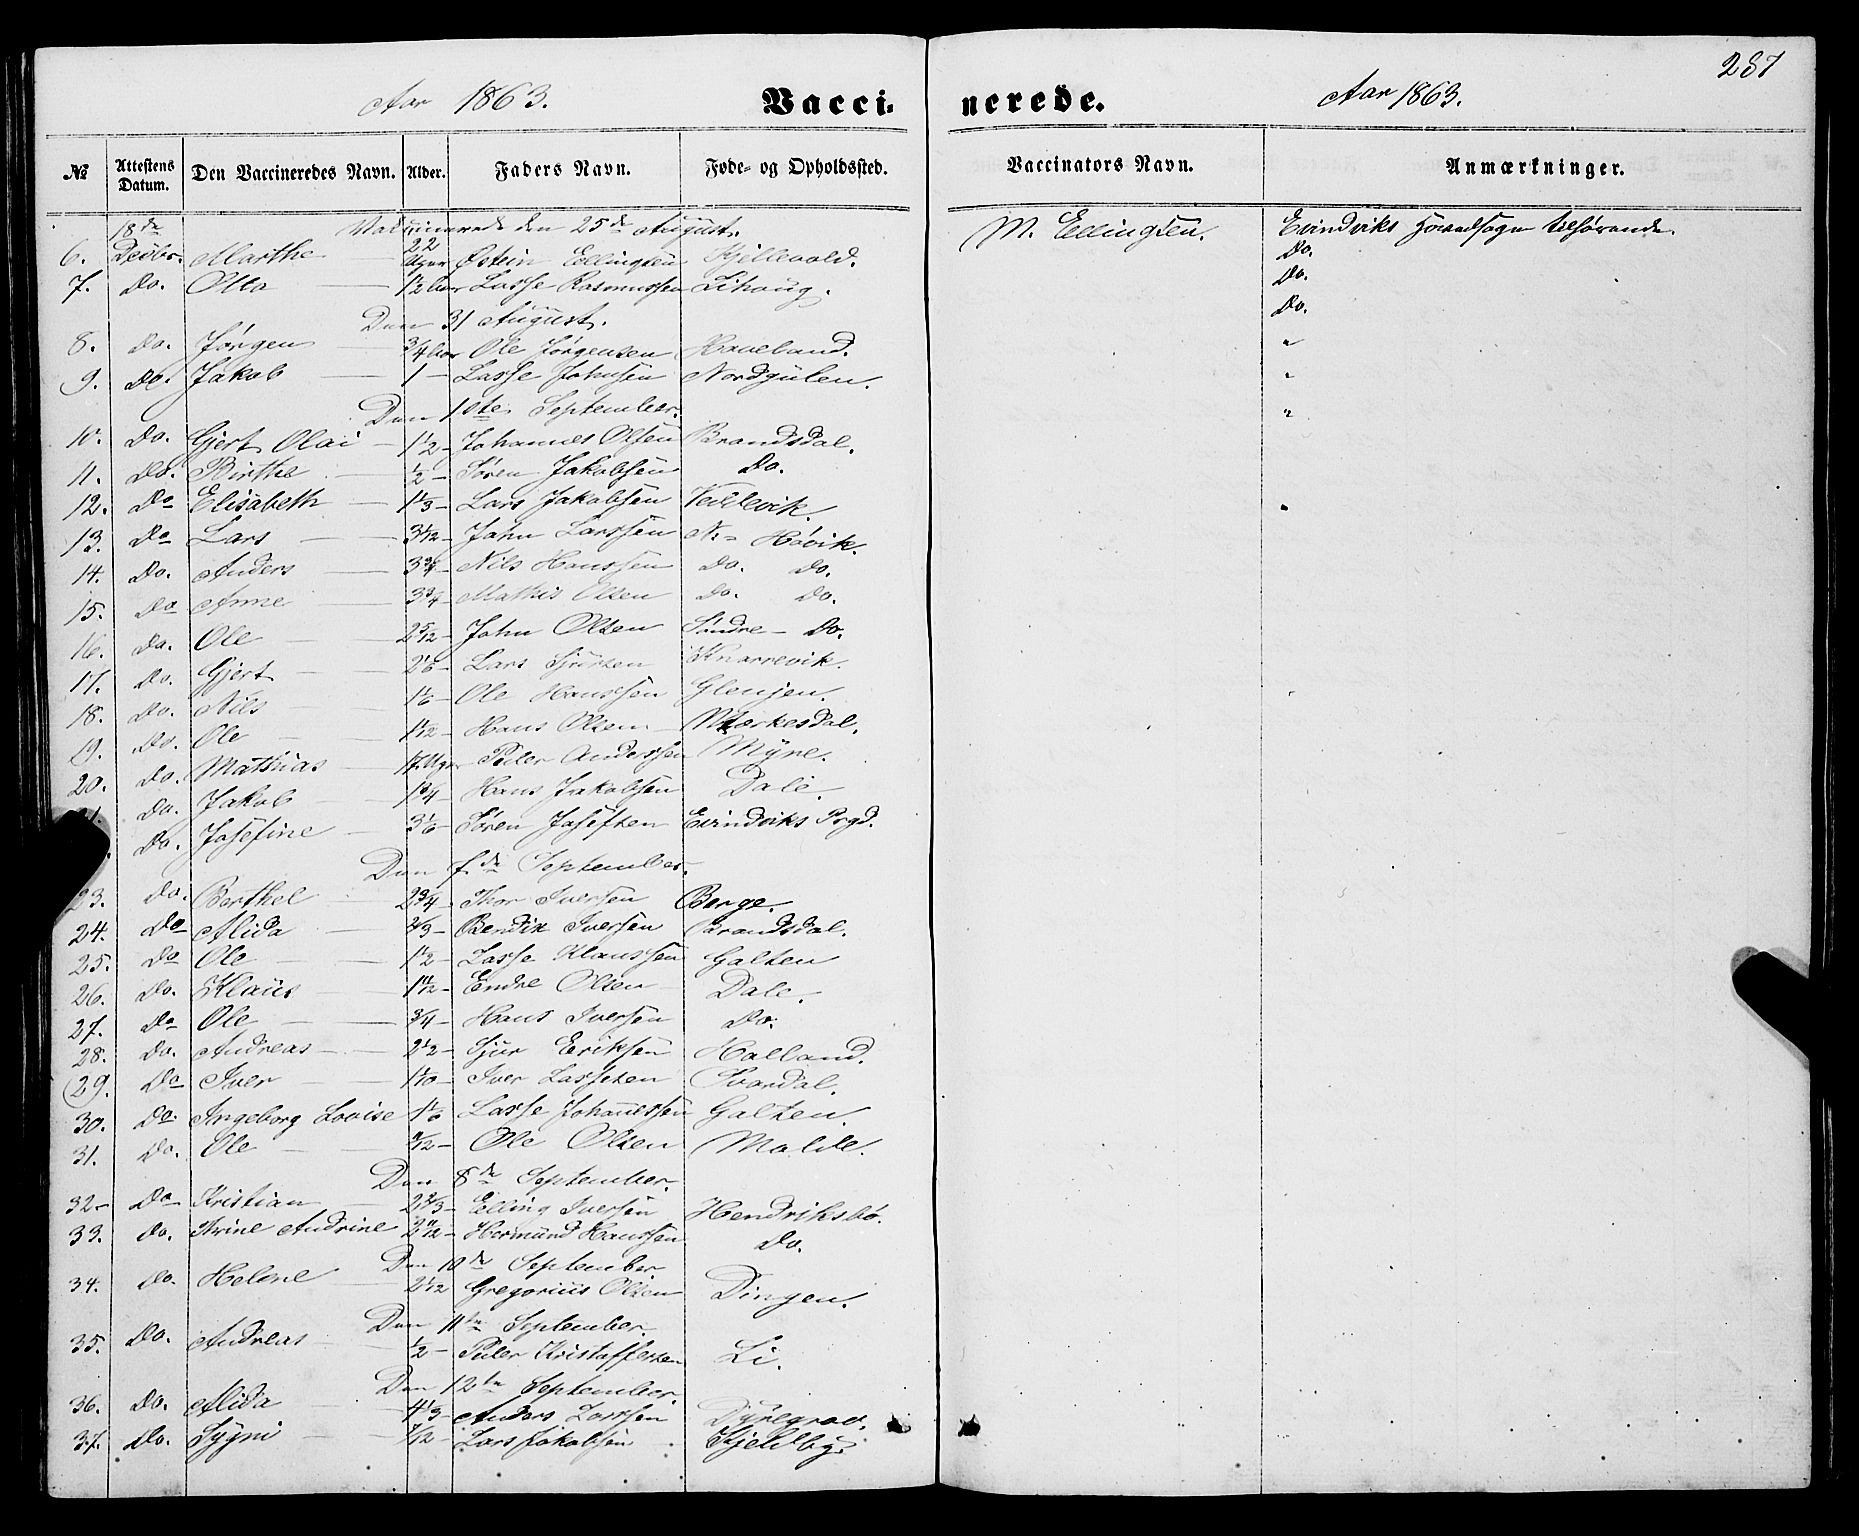 287
Aar 1863. Vacci-nerede. Aar 1863.
No Attestens Datum. Den Vaccineredes Navn. Alder. Faders Navn. Føde- og Opholdssted. Vaccinators Navn. Anmærkninger.
18de Vaccinerede den 25de August. M. Ellingsen. Evindviks Hovedsogn tilhørende.
6. Decbr. Marthe 22 Uger Østein Ellingsen Hjellevold. Do.
7. Do. Olea 1 1/2 Aar Lasse Rasmussen Lihoug. Do.
Den 31 August. Do.
8. Do. Jørgen 3/4 Aar Ole Jørgensen Haveland. "
9. Do. Jakob 1 — Lasse Johnsen Nordgulen. "
Den 1ste September. "
10. Do. Gjert Olai 1 1/2 — Johannes Olsen Brandsdal.
11. Do. Birthe 1/2 — Søren Jakobsen Do.
12. Do Elisabeth 1 1/3 — Lars Jakobsen Vedlevik.
13. Do Lars — 3 1/12 — John Larssen N. - Høvik.
14. Do. Anders — 3 3/4 — Nils Hanssen Do. Do.
15. Do Anne — 3 3/4 — Mathis Olsen Do. Do.
16. Do. Ole — 2 5/12 — John Olsen Søndre — Do.
17. Do. Gjert — 2 1/6 — Lars Sjursen Knarrevik.
18. Do. Nils — 1 1/6 — Ole Hanssen Glenjen.
19. Do. Ole — 1 1/12 — Hans Olsen Mærkesdal.
20. Do. Mathias — 17 Uger Peder Anderssen Myne.
21. Do. Jakob 1 3/4 — Hans Jakobsen Dale.
Do. Josefine — 3 1/6 — Søren Josefsen Evindviks Prgd.
Den 7de September.
23. Do. Berthel 2 3/4 — Thor Iversen Berge.
24. Do Alida — 2/3 — Bendix Iversen Brandsdal.
25. Do Ole — 1 1/2 — Lasse Klaussen Galten
26. Do. Klaus — Endre Olsen Dale.
27. Do Ole — 3/4 — Hans Iversen Do.
28. Do. Andreas — 2 1/2 — Sjur Eriksen Halland.
29. Do Iver — 1 1/10 — Iver Lassesen Svardal.
30. Do. Ingeborg Lovise 1 1/6 Lasse Johannessen Galten.
31. Do. Ole — Ole Olsen Molde.
Den 8de September.
32 — Do Kristian — 2 2/3 — Elling Iversen Hendriksbø.
33. Do. Thrine Andrine Hermund Hanssen Do.
Den 10de September
34. Do. Helene 2 1/12 Gregorius Olsen Dingen.
Den 11te September.
35. Do. Andreas 1/2 — Peder Kristoffersen Li.
Den 12te September.
36. Do. Alida 4 1/3 — Anders Larssen Dyregrov.
37. Do. Sygni — 7/12 — Lars Jakobsen Hjeldby.